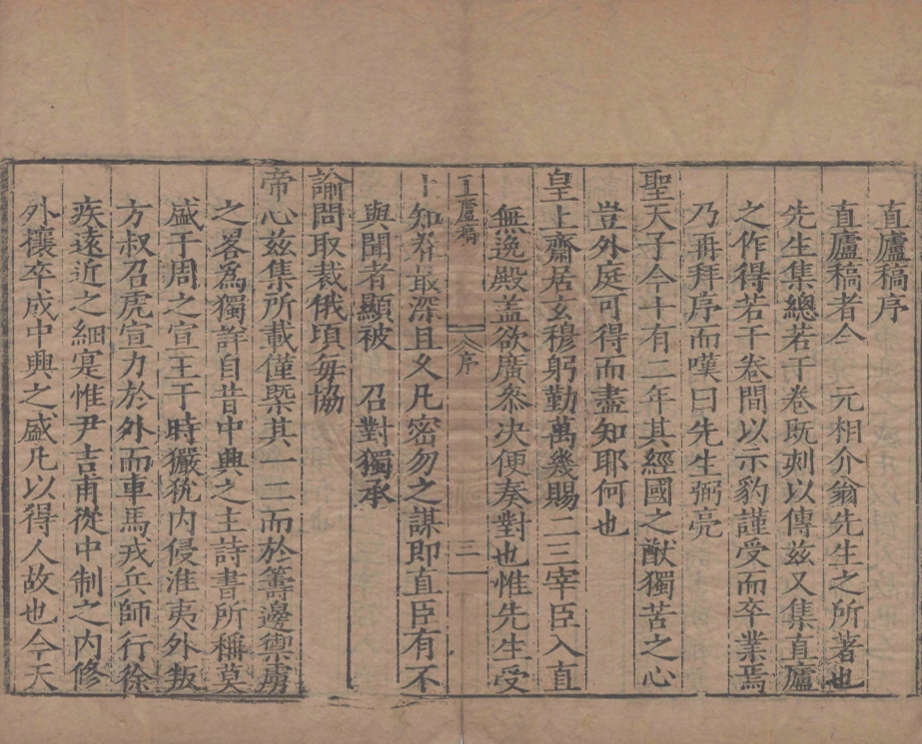 直廬稿序
直廬稿者今 元相介翁先生之所著也
先生集總若干卷既刻以傳茲又集直廬
之作得若干卷間以示豹謹受而卒業焉
乃再拜序而嘆曰先生弼亮
聖天子今十有二年其經國之猷獨苦之心
豈外庭可得而盡知耶何也
皇上齋居玄穆躬勤萬幾賜二三宰臣入直
無逸殿盖欲廣叅决便奏對也惟先生受
直廬稿 序 三
上知眷最深且久凡密勿之謀即直臣有不
與聞者顯被 召對獨承
諭問取裁俄頃每協
帝心茲集所載僅槩其一二而於籌邊禦虜
之畧為獨詳自昔中興之主詩書所稱莫
盛于周之宣王于時玁狁内侵淮夷外叛
方叔召虎宣力於外而車馬戎兵師行徐
疾遠近之細寔惟尹吉甫從中制之内修
外攘卒成中興之盛凡以得人故也今天